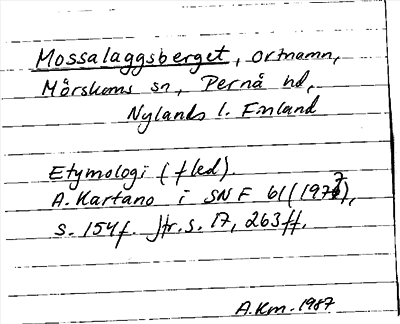 Mossalaggsberget, ortnamn,
Mörskoms sn, Pernå hd,
Nylands l. Finland
Etymologi (fled).
A. Kartano i SNF 61 (1972),
s. 154f. Jfr. s. 17, 263ff.
A.Km. 1987